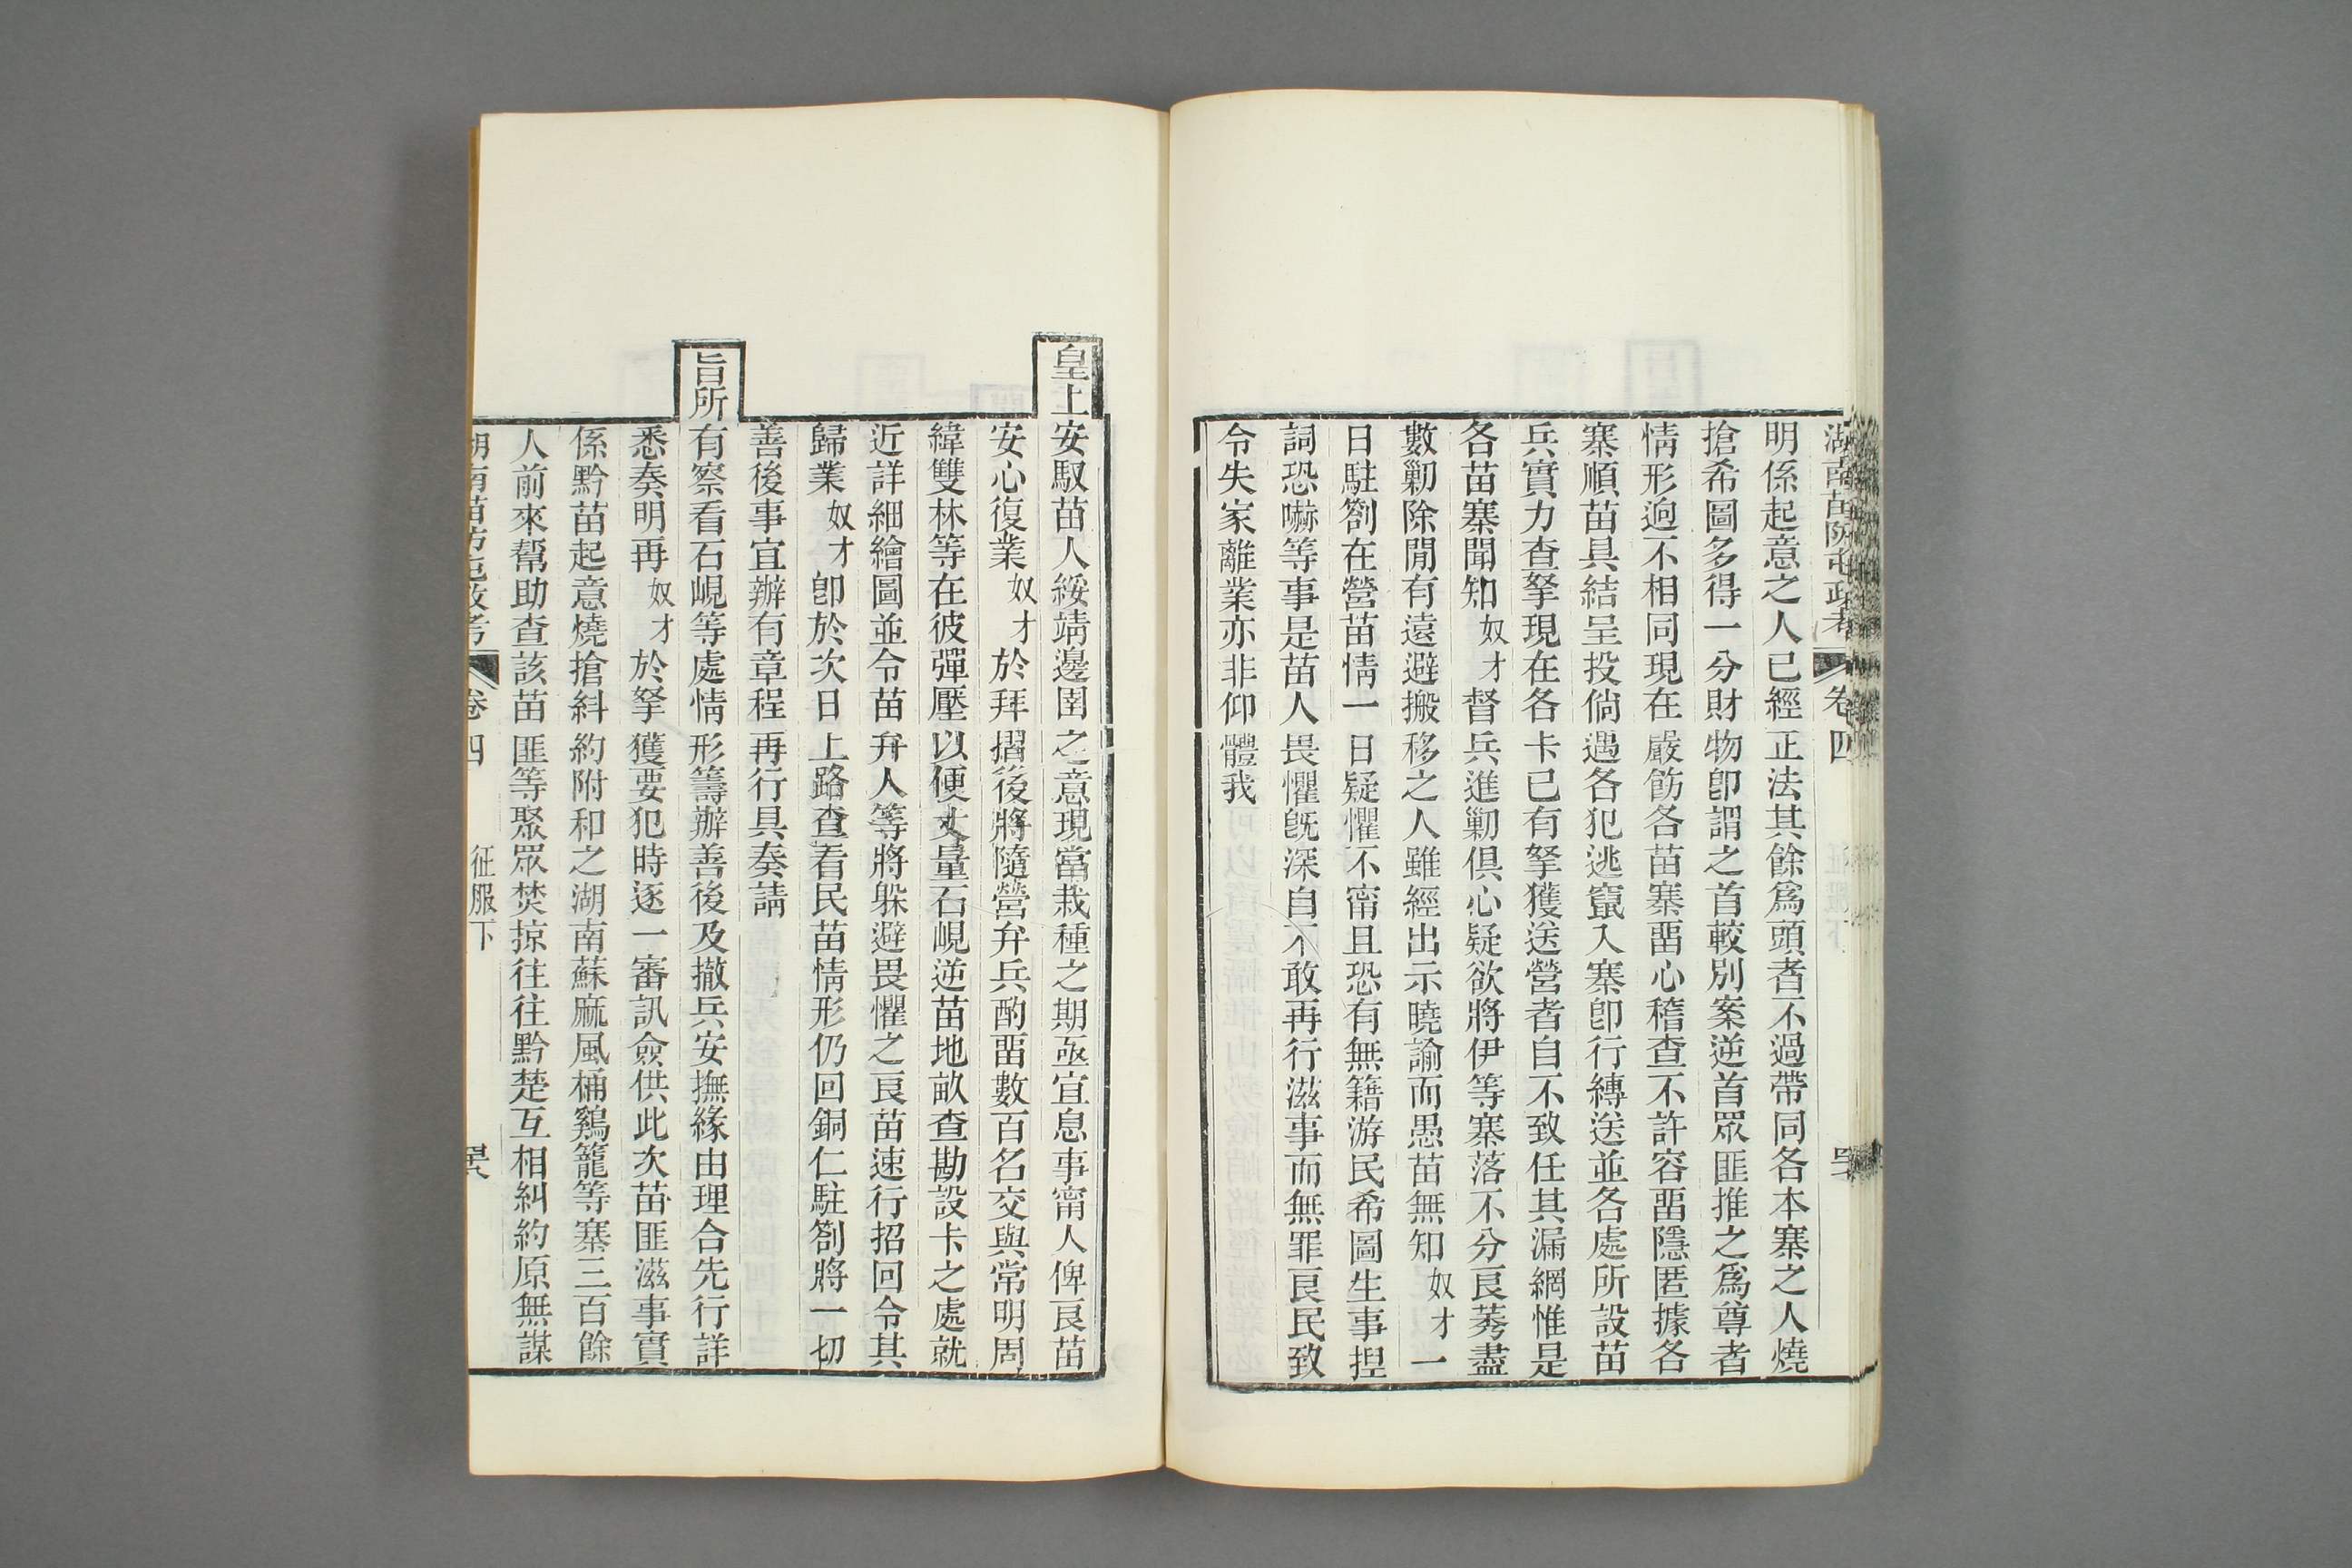 湖南苗防屯政考 卷四
明係起意之人已經正法其餘爲頭者不過帶同各本寨之人燒
搶希圖多得一分財物卽謂之首較別案逆首眾匪推之爲尊者
情形逈不相同現在嚴飭各苗寨畱心稽查不許容畱隱匿據各
寨順苗具結呈投倘遇各犯逃竄入寨卽行縛送並各處所設苗
兵實力查拏現在各卡已有拏獲送營者自不致任其漏網惟是
各苗寨聞知奴才督兵進勦俱心疑欲將伊等寨落不分良莠盡
數勦除閒有遠避搬移之人雖經出示曉諭而愚苗無知奴才一
日駐劄在營苗情一日疑懼不甯且恐有無籍游民希圖生事捏
詞恐嚇等事是苗人畏懼旣深自不敢再行滋事而無罪良民致
令失家離業亦非仰體我
皇上安馭苗人綏靖邊圉之意現當栽種之期亟宜息事甯人俾良苗
安心復業奴才於拜摺後將隨營弁兵酌畱數百名交與常明周
緯雙林等在彼彈壓以便丈量石峴逆苗地畝查勘設卡之處就
近詳細繪圖並令苗弁人等將躲避畏懼之良苗速行招回令其
歸業奴才卽於次日上路查看民苗情形仍回銅仁駐劄將一切
善後事宜辦有章程再行具奏請
旨所有察看石峴等處情形籌辦善後及撤兵安撫緣由理合先行詳
悉奏明再奴才於拏獲要犯時逐一審訊僉供此次苗匪滋事實
係黔苗起意燒搶糾約附和之湖南蘇麻風桶鷄籠等寨三百餘
人前來幫助查該苗匪等聚眾焚掠往往黔楚互相糾約原無謀
湖南苗防屯政考 卷四 征服下